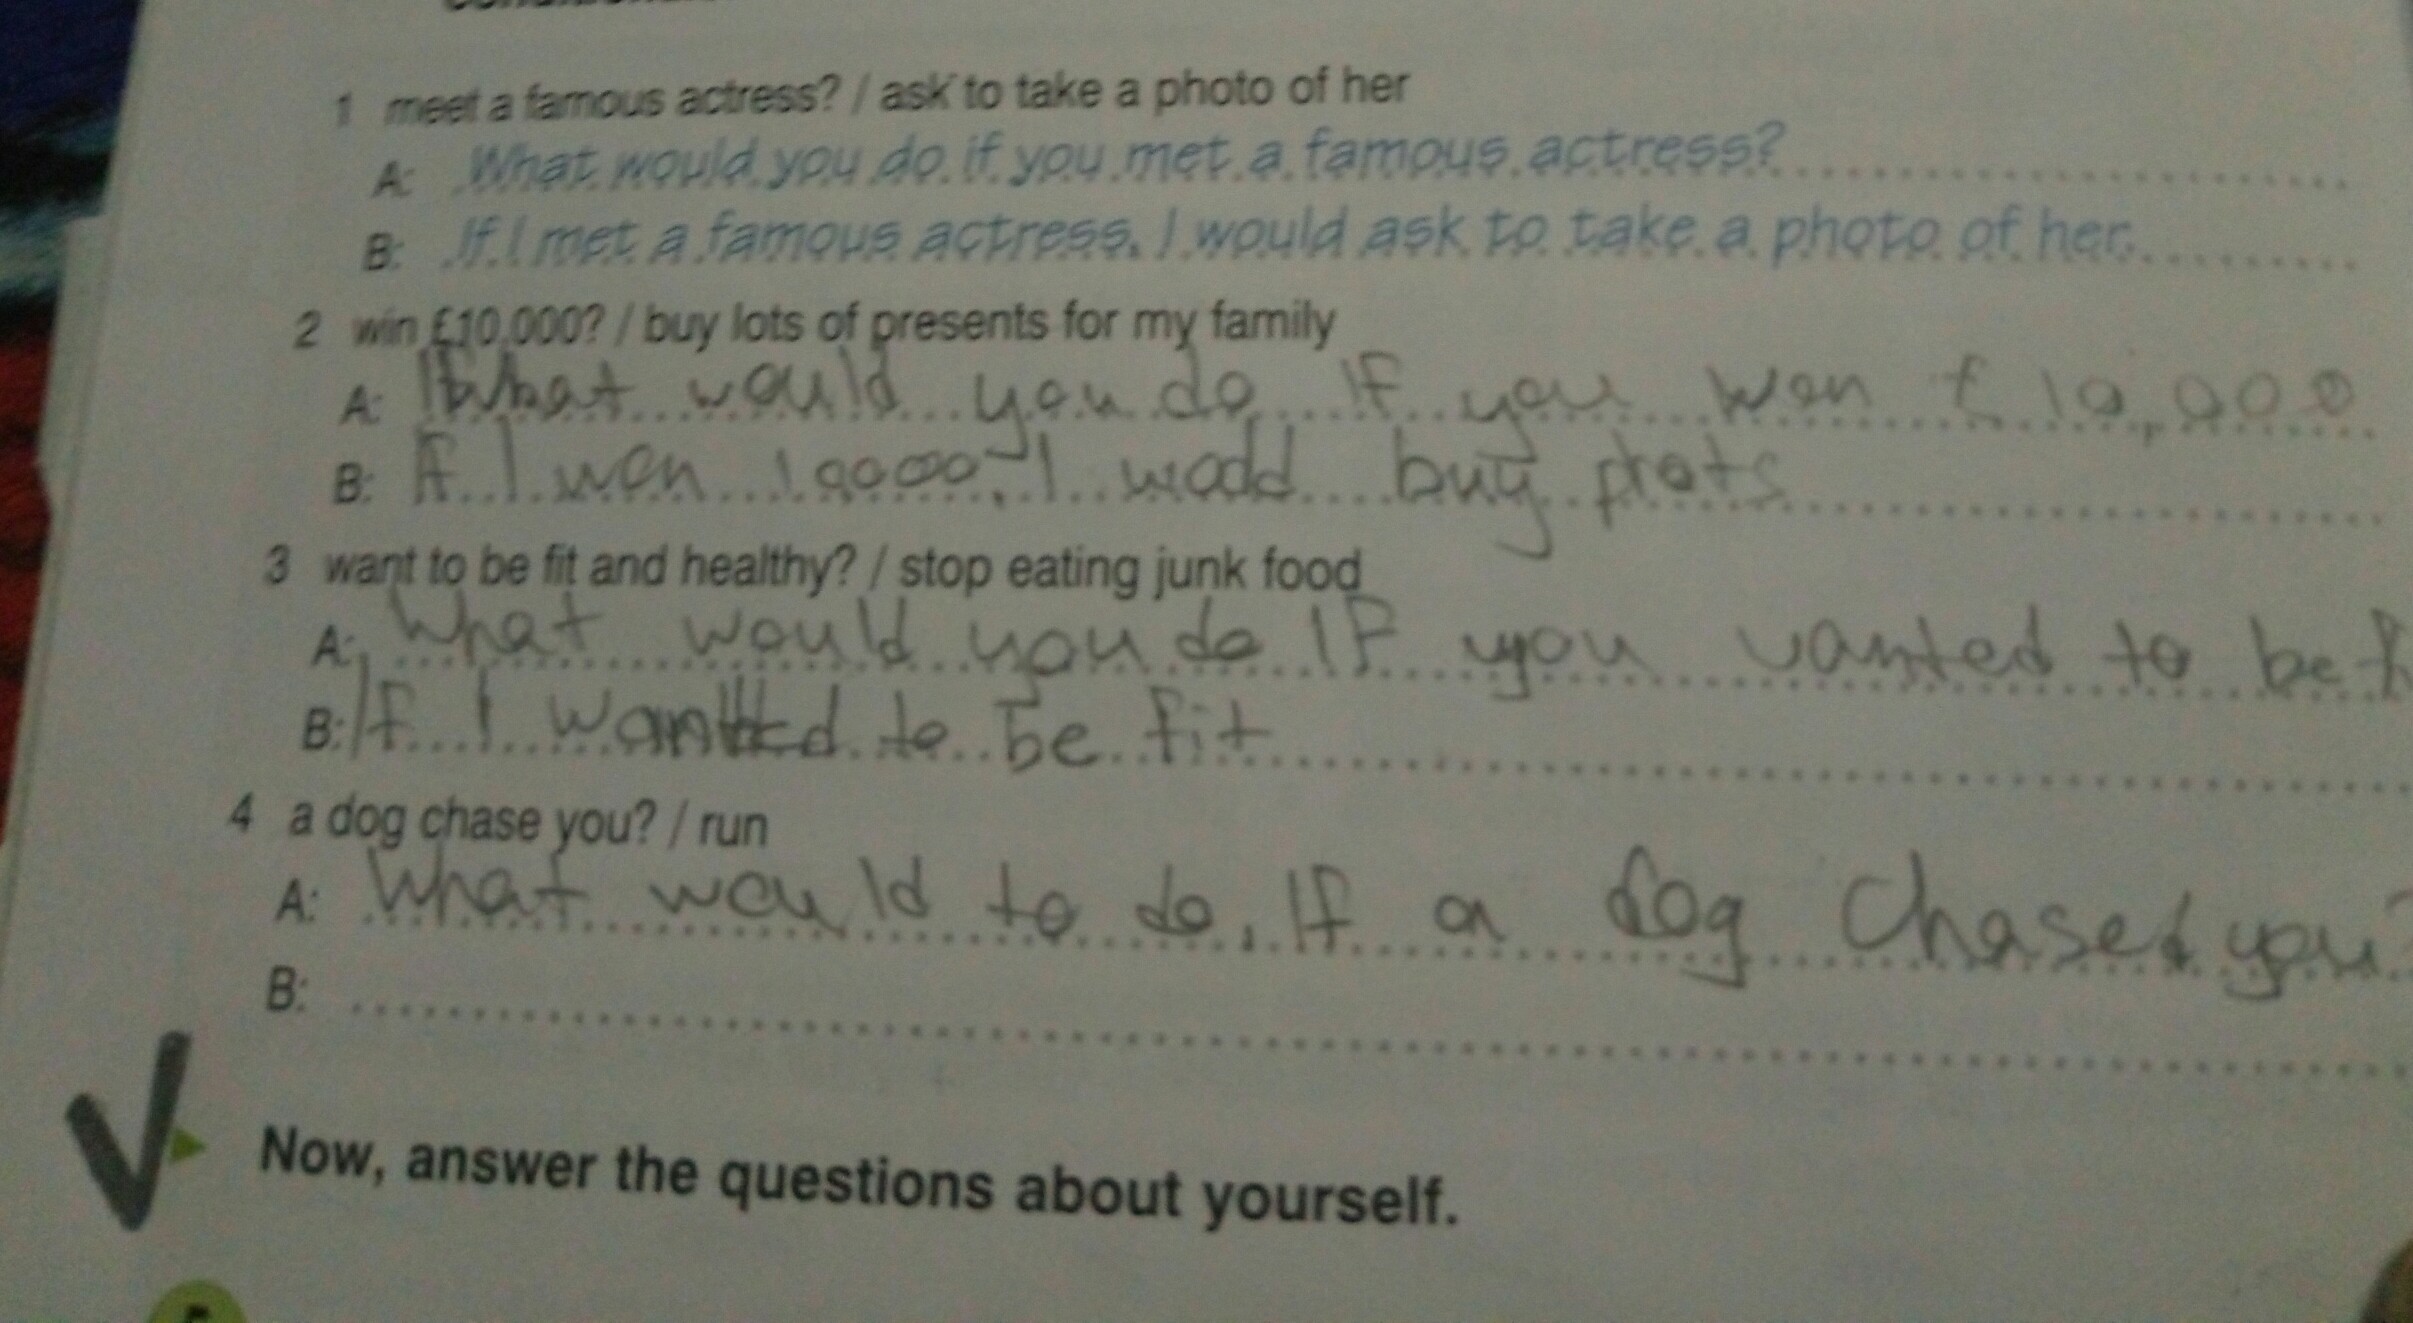 1 meet a famous actress? / ask to take a photo of her
A: What would you do if you met a famous actress?
B: If I met a famous actress, I would ask to take a photo of her.
2 win £10,000? / buy lots of presents for my family
A: What would you do, If you won £10,000
B: If I won 10000, I would buy
3 want to be fit and healthy? / stop eating junk food
A: What would you do If you wanted to be
B: If I wantted to be fit
4 a dog chase you? / run
A: What would to do, If a dog chased you?
B:
Now, answer the questions about yourself.